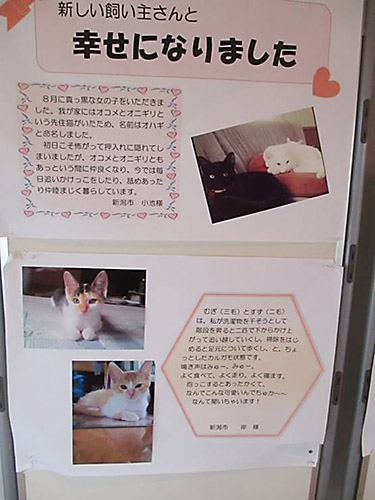 新しい飼い主さんと
幸せになりました
8月に真っ黒な女の子をいただきま
した。我が家にはオコメとオニギリと
いう先住猫がいたため、名前はオハギ
と命名しました。
初日こそ怖がって押入れに隠れてし
まいましたが、オコメとオニギリとも
あっという間に仲良くなり、今では毎
日追いかけっこをしたり、舐めあった
り仲睦まじく暮らしています。
新潟市 小池様
むぎ(三毛)とすず(二毛)
は、私が洗濯物を干そうとして
階段を昇ると二匹で下からかけ上
がって追い越していくし、掃除をはじ
めると足元について歩くし、と、ちょ
っとしたカルガモ状態です。
鳴き声はみゅー、みゅー。
よく食べて、よく走り、よく寝ます。
抱っこするとあったかくて、
なんでこんな可愛いんでちゅか～～
なんて聞いちゃいます!
新潟市 岸 様